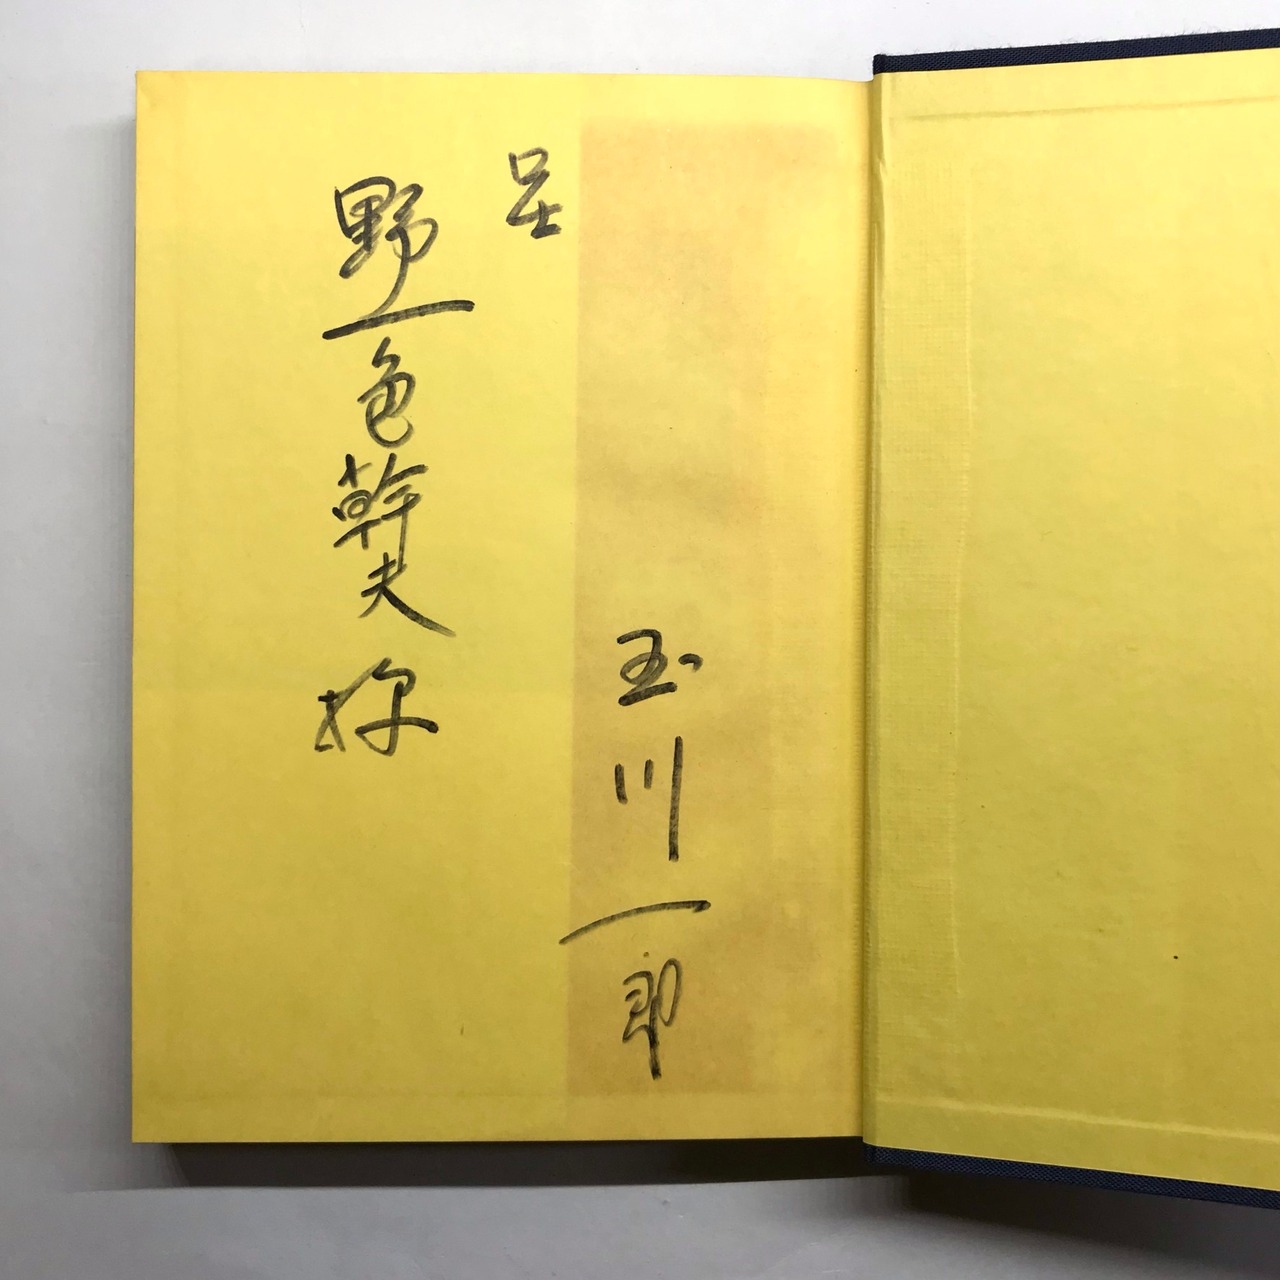 呈
野一色幹夫 様
玉川一郎